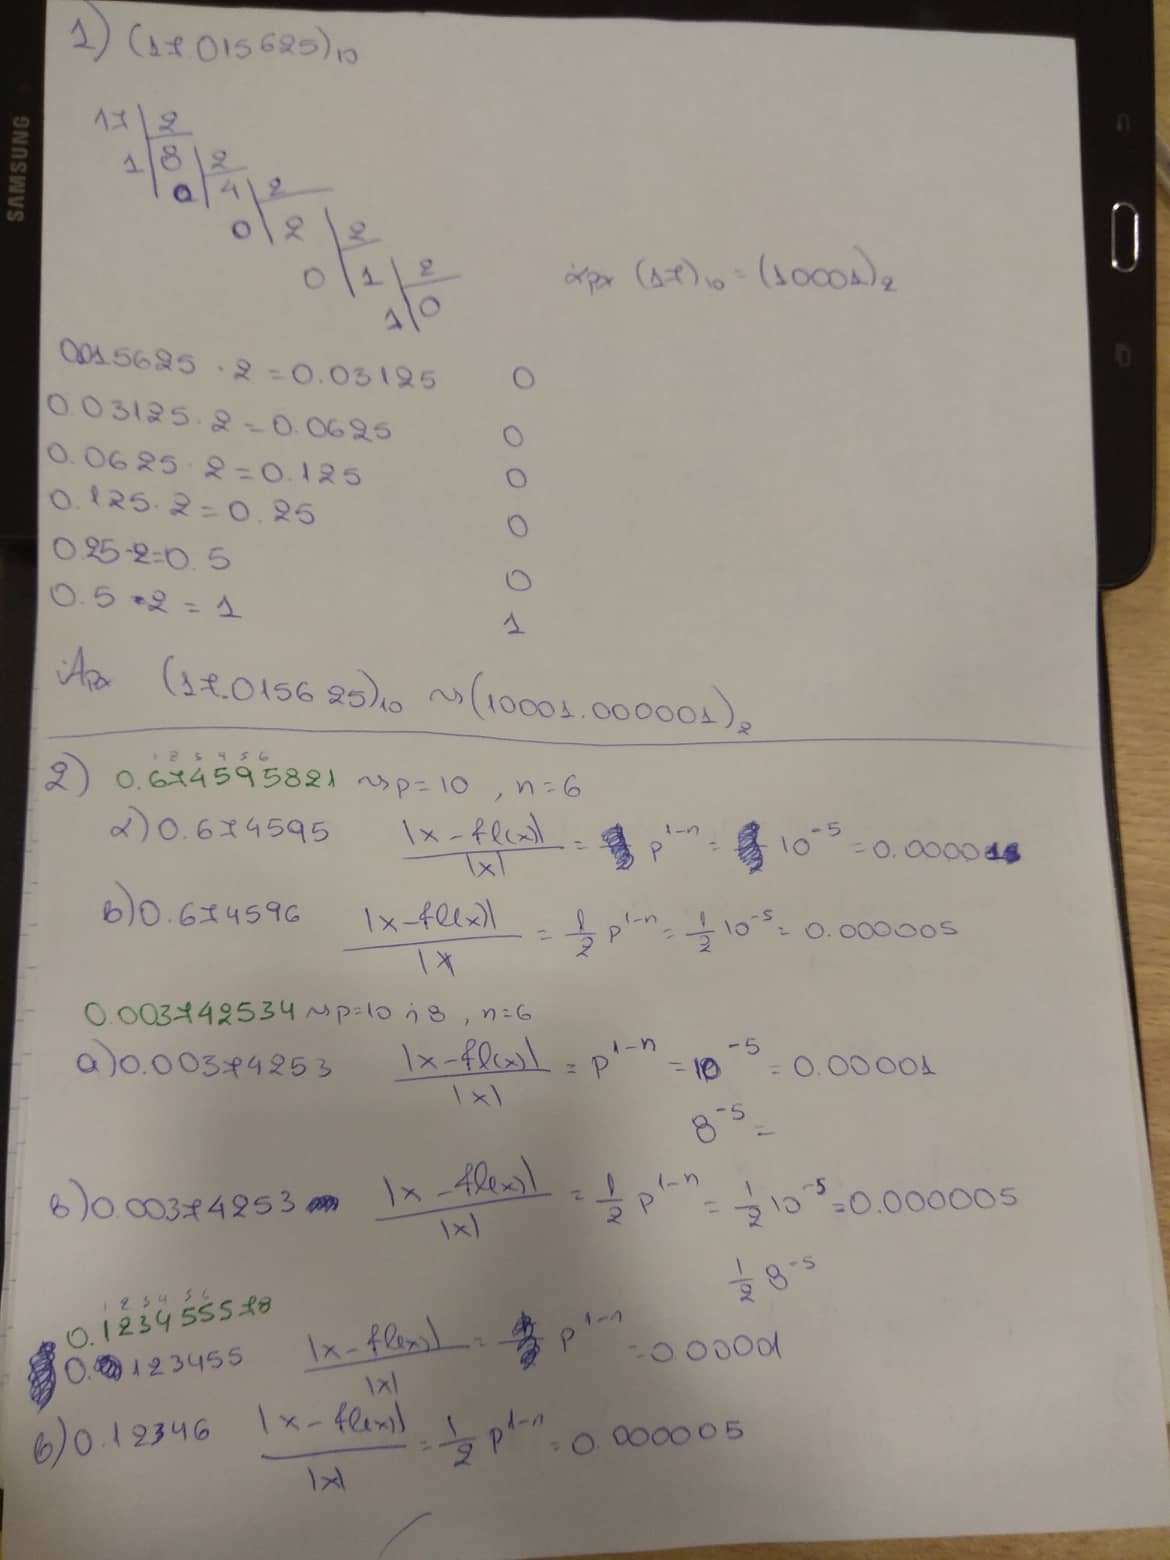 SAMSUNG
1) (17.015625)₁₀
17 | 2
1 | 8 | 2
0 | 4 | 2
0 | 2 | 2
0 | 1 | 2
1 | 0
άρα (17)₁₀ = (10001)₂
0.015625 · 2 = 0.03125 0
0.03125 · 2 = 0.0625 0
0.0625 · 2 = 0.125 0
0.125 · 2 = 0.25 0
0.25 · 2 = 0.5 0
0.5 · 2 = 1 1
Άρα (17.015625)₁₀ ⇝ (10001.000001)₂
1 2 3 4 5 6
2) 0.674595821 ⇝ p = 10 , n = 6
α) 0.674595 |x - fl(x)| / |x| = p^(1-n) = 10^(-5) = 0.00001
β) 0.674596 |x - fl(x)| / |x| = 1/2 p^(1-n) = 1/2 10^(-5) = 0.000005
0.003742534 ⇝ p = 10 ή 8 , n = 6
α) 0.00374253 |x - fl(x)| / |x| = p^(1-n) = 10^(-5) = 0.00001
8^(-5) =
β) 0.00374253 |x - fl(x)| / |x| = 1/2 p^(1-n) = 1/2 10^(-5) = 0.000005
1/2 8^(-5)
1 2 3 4 5 6
0.123455578
0.123455 |x - fl(x)| / |x| = p^(1-n) = 0.00001
β) 0.12346 |x - fl(x)| / |x| = 1/2 p^(1-n) = 0.000005